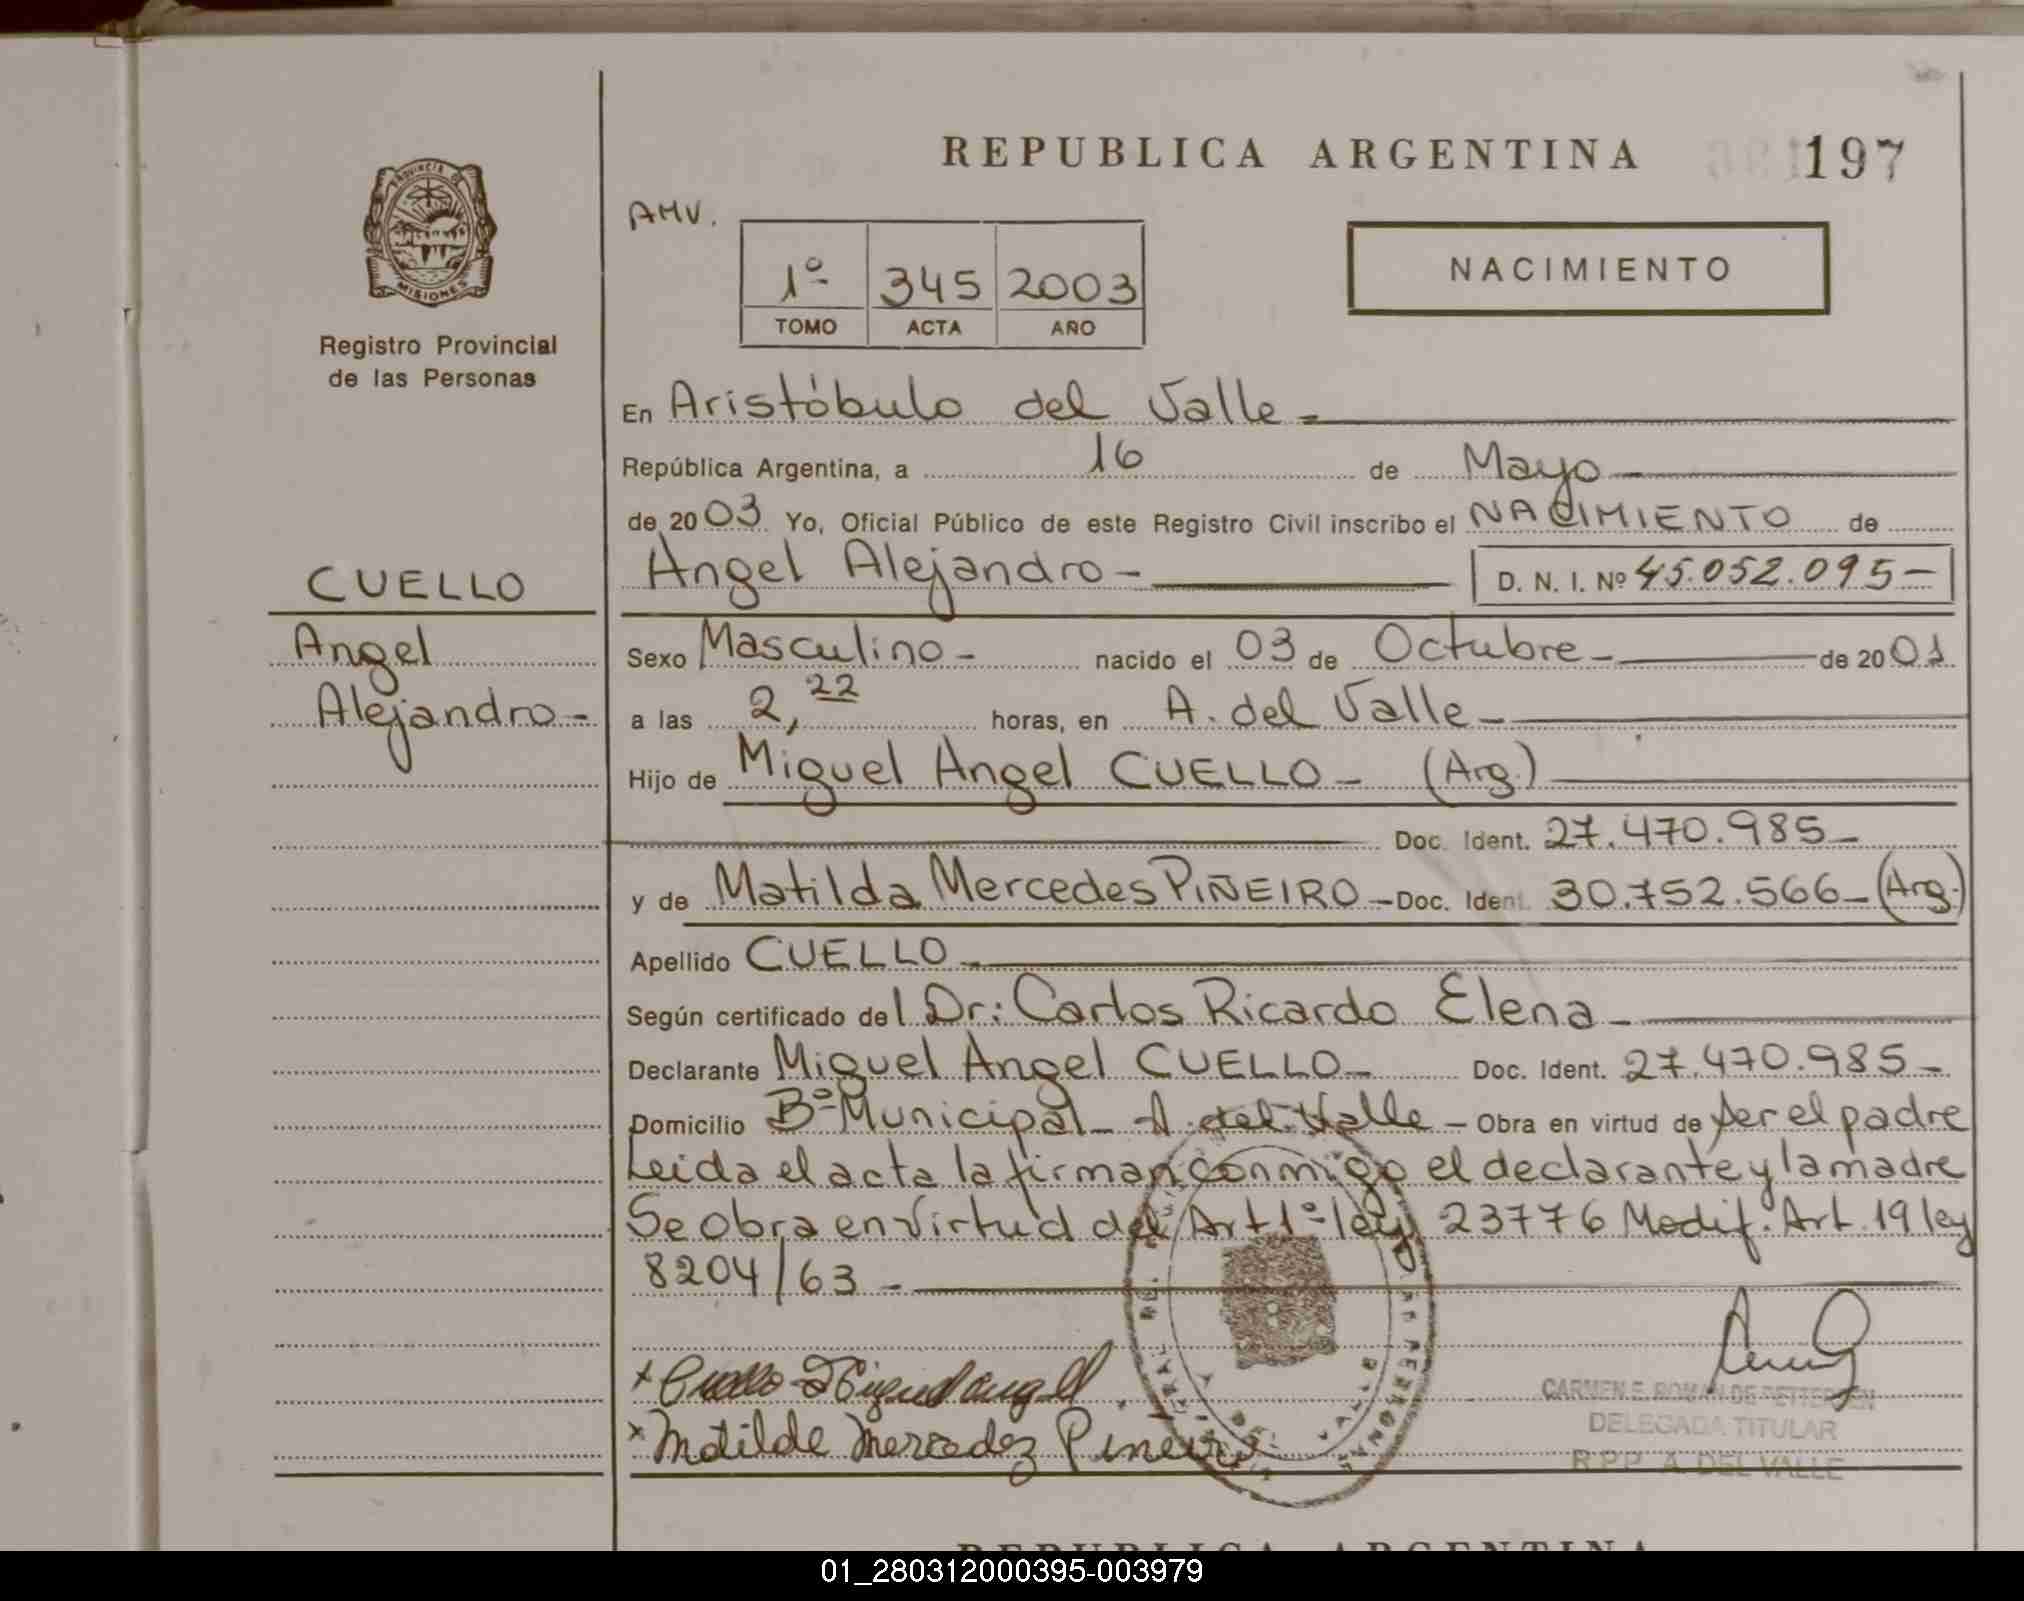 REPUBLICA ARGENTINA 197
AMV.
1º 345 2003
TOMO ACTA AÑO
NACIMIENTO
PROVINCIA DE
MISIONES
Registro Provincial
de las Personas
En Aristóbulo del Valle
República Argentina, a 16 de Mayo
de 2003 Yo, Oficial Público de este Registro Civil inscribo el NACIMIENTO de
Angel Alejandro - D. N. I. Nº 45.052.095-
CUELLO
Angel
Alejandro-
Sexo Masculino - nacido el 03 de Octubre - de 2001
a las 2,22 horas, en A. del Valle-
Hijo de Miguel Angel CUELLO - (Arg.)
Doc. Ident. 27.470.985-
y de Matilda Mercedes PIÑEIRO - Doc. Ident. 30.752.566- (Arg.)
Apellido CUELLO
Según certificado del Dr: Carlos Ricardo Elena -
Declarante Miguel Angel CUELLO - Doc. Ident. 27.470.985-
Domicilio Bº Municipal - A. del Valle - Obra en virtud de ser el padre
Leida el acta la firman conmigo el declarante y la madre
Se obra en virtud del Art 1º ley 23776 Modif. Art. 19 ley
8204/63 -
x Cuello Miguel angel
x Matilde Mercedez Pineiro
CARMEN E. ROMAN DE PETTERSEN
DELEGADA TITULAR
R.P.P. A. DEL VALLE
REPUBLICA ARGENTINA
01_280312000395-003979